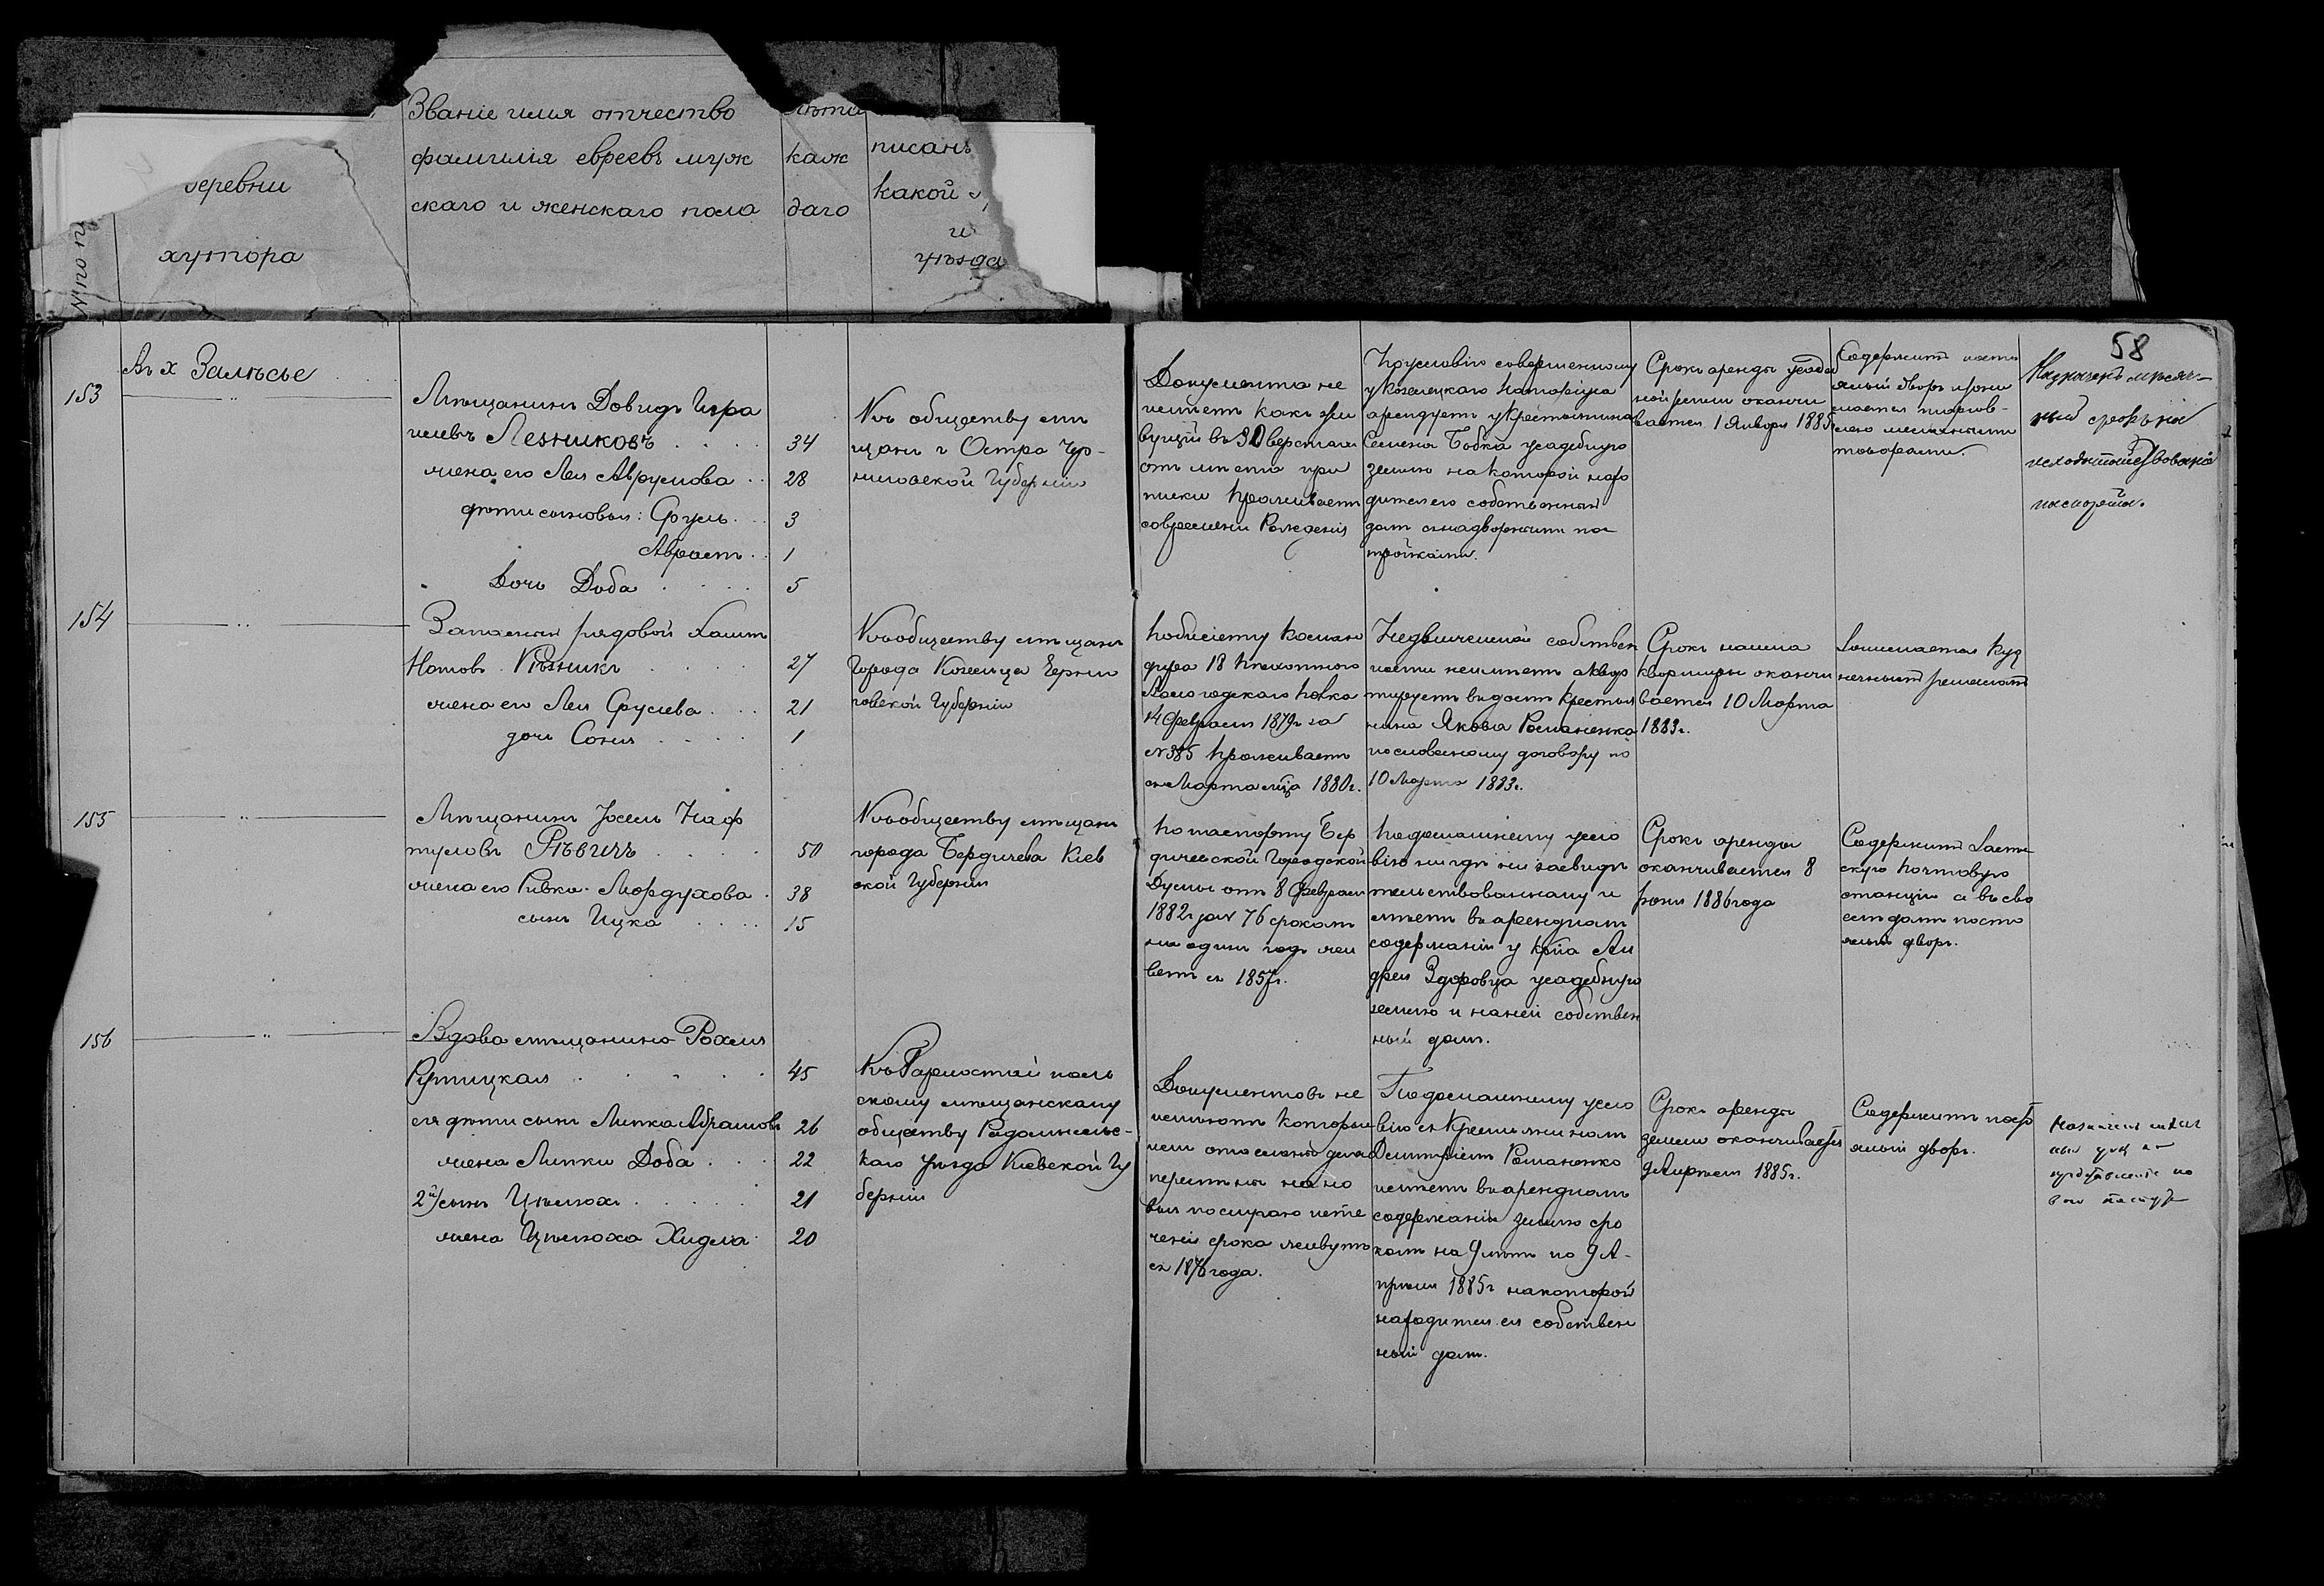 деревни
хутора
№ по п
Званіе имя отчество
фамилія евреевъ муж
скаго и женскаго пола
лѣта
каж
даго
писанъ
какой
и
уѣзда
58
Въ х Залѣсье
153
Мѣщанинъ Довидъ Изра
илевъ Лезниковъ 34
жена его Лея Аврумова 28
дѣти сыновья: Сруль 3
Абрамъ 1
Дочь Доба 5
Къ обществу мѣ
щанъ г Остра Чер-
ниговской Губерніи
Документа не
имѣетъ какъ жи
вущій въ 30 верстахъ
отъ мѣста при
писки Проживаетъ
со времени Рожденія
По условію совершенному
у Козелецкаго Нотаріуса
арендуетъ у Крестьянина
Семена Бобка усадебную
землю на которой нахо
дится его собственный
домъ съ надворными по
стройками.
Срокъ аренды усадеб
ной земли оканчи
вается 1 Января 1885
Содержитъ посто
ялый дворъ и зани
мается торгов-
лею мелочными
товарами.
Назначенъ мѣсяч-
ный срокъ на
исходатайствованіе
паспорта.
154
Запасный рядовой Хаимъ
Нотовъ Рѣзникъ 27
жена его Лея Срулева 21
дочь Соня 1
Къ обществу мѣщанъ
города Козельца Черни
говской Губерніи
По билету Коман
дира 18 Пѣхотнаго
Вологодскаго Полка
14 Февраля 1879г за
№ 385 Проживаетъ
съ Марта мца 1880г.
Недвижимой собствен
ности неимѣетъ а квар
тируетъ въ домѣ Крестья
нина Якова Романенка
по словесному договору по
10 Марта 1883г.
Срокъ найма
квартиры оканчи
вается 10 Марта
1883г.
Занимается Куз
нечнымъ ремесломъ
155
Мѣщанинъ Іосель Наф
туловъ Рѣвичъ 50
жена его Ривка Мордухова 38
сынъ Ицка 15
Къ обществу мѣщанъ
города Бердичева Кіев
ской Губерніи
По паспорту Бер
дичевской Городской
Думы отъ 8 Февраля
1882г за № 76 срокомъ
на одинъ годъ жи
ветъ съ 1857г.
По домашнему усло
вію нигдѣ не засвидѣ
тельствованному и
мѣетъ въ арендномъ
содержаніи у Кр-на Ан
дрея Здоровца усадебную
землю и на ней собствен
ный домъ.
Срокъ аренды
оканчивается 8
Іюня 1886 года
Содержитъ
скую почтовую
станцію а въ сво
емъ домѣ посто
ялый дворъ.
156
Вдова мѣщанина Рохля
Рутицкая 45
ея дѣти сынъ Липка Абрамовъ 26
жена Липки Доба 22
2й/сынъ 21
жена Хидля 20
мѣщанскому
обществу Радомысльс-
каго Уѣзда Кіевской Гу
берніи
Документовъ не
имѣютъ которые
ими отосланы для
перемѣны на но
вые по случаю исте
ченія срока живутъ
съ 1876 года.
По домашнему усло
вію съ Крестьяниномъ
Дмитріемъ Романенко
имѣетъ въ арендномъ
содержаніи землю сро
комъ на 9 лѣтъ по 9 А-
прѣля 1885г на которой
находится ея собствен
ный домъ.
Срокъ аренды
земли оканчивается
9 Апрѣля 1885г.
Содержитъ посто
ялый дворъ.